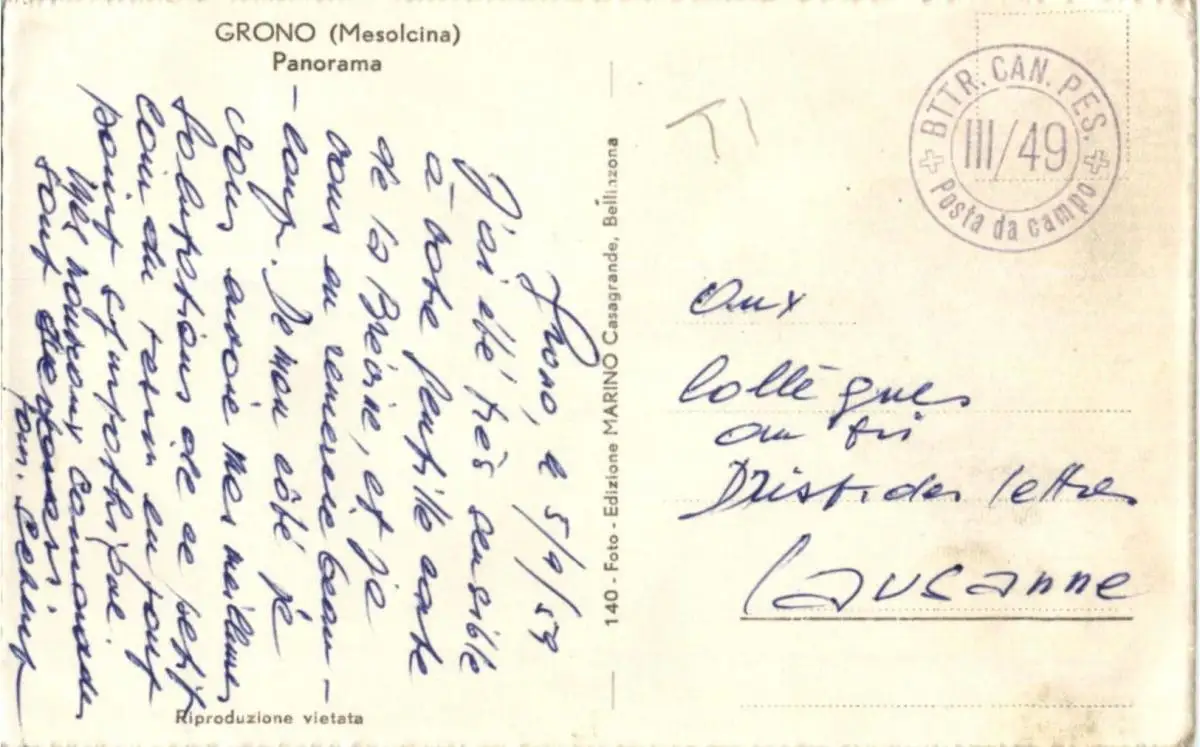 GRONO (Mesolcina)
Panorama
Grono, le 5/9/59
J'ai été très sensible
à votre gentille carte
de la Brévine, et je
vous en remercie beau-
- coup. De mon côté je
vous envoie mes meilleures
salutations de ce petit
coin du tessin en tout
point sympathique.
Mes nouveaux Camarades
sont
140 - Foto - Edizione MARINO Casagrande, Bellinzona
Riproduzione vietata
TI
BTTR. CAN. PES.
III/49
Posta da campo
Aux
Collègues
au tri
Dist. des lettres
Lausanne